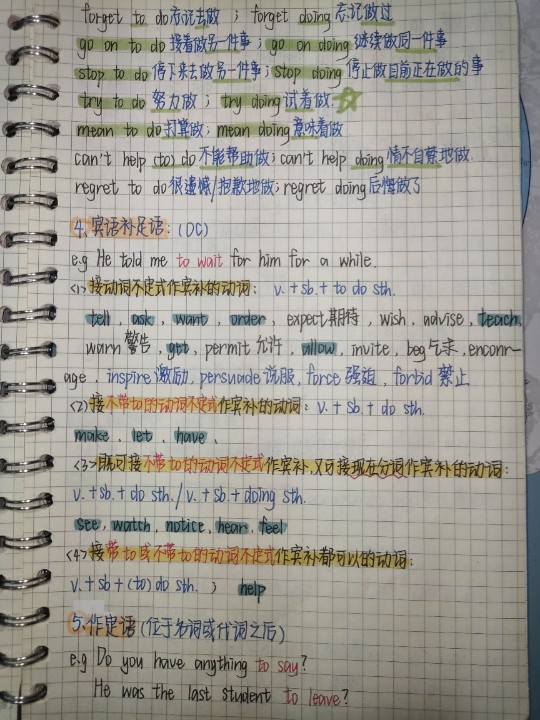 forget to do忘记去做 ; forget doing 忘记做过
go on to do 接着做另一件事; go on doing 继续做同一件事
stop to do 停下来去做另一件事; stop doing 停止做目前正在做的事
try to do 努力做; try doing 试着做.
mean to do 打算做; mean doing 意味着做
can't help (to) do 不能帮助做; can't help doing 情不自禁地做.
regret to do 很遗憾/抱歉地做; regret doing 后悔做了
4、宾语补足语: (OC)
e.g He told me to wait for him for a while.
<1>接动词不定式作宾补的动词: v.+sb.+ to do sth.
tell, ask, want, order, expect 期待, wish, advise, teach,
warn 警告, get, permit 允许, allow, invite, beg 乞求, encour-
age, inspire 激励, persuade 说服, force 强迫, forbid 禁止
<2>接不带to的动词不定式作宾补的动词: v.+sb+do sth.
make, let, have,
<3>既可接不带to的动词不定式作宾补,又可接现在分词作宾补的动词:
v.+sb.+do sth./v.+sb.+doing sth.
see, watch, notice, hear, feel
<4>接带to或不带to的动词不定式作宾补都可以的动词:
v.+sb+(to) do sth. ; help
5、作定语 (位于名词或代词之后)
e.g Do you have anything to say?
He was the last student to leave?